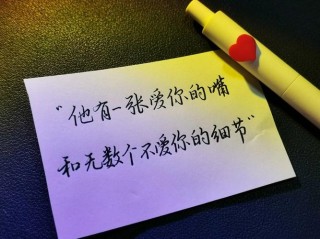 “他有一张爱你的嘴
和无数个不爱你的细节”